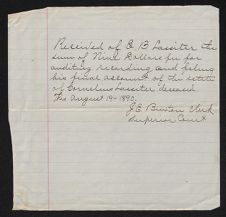 Received of E B Lassiter the
sum of Nine Dollars for fee for
auditing, recording and filing
his final account of the estate
of Cornelius Lassiter deceased
This August 19 - 1890.
J. E. Buxton Clerk
Superior Court